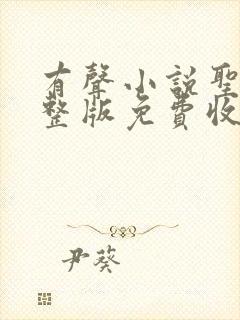 有聲小說聖
整版免費收
尹葵